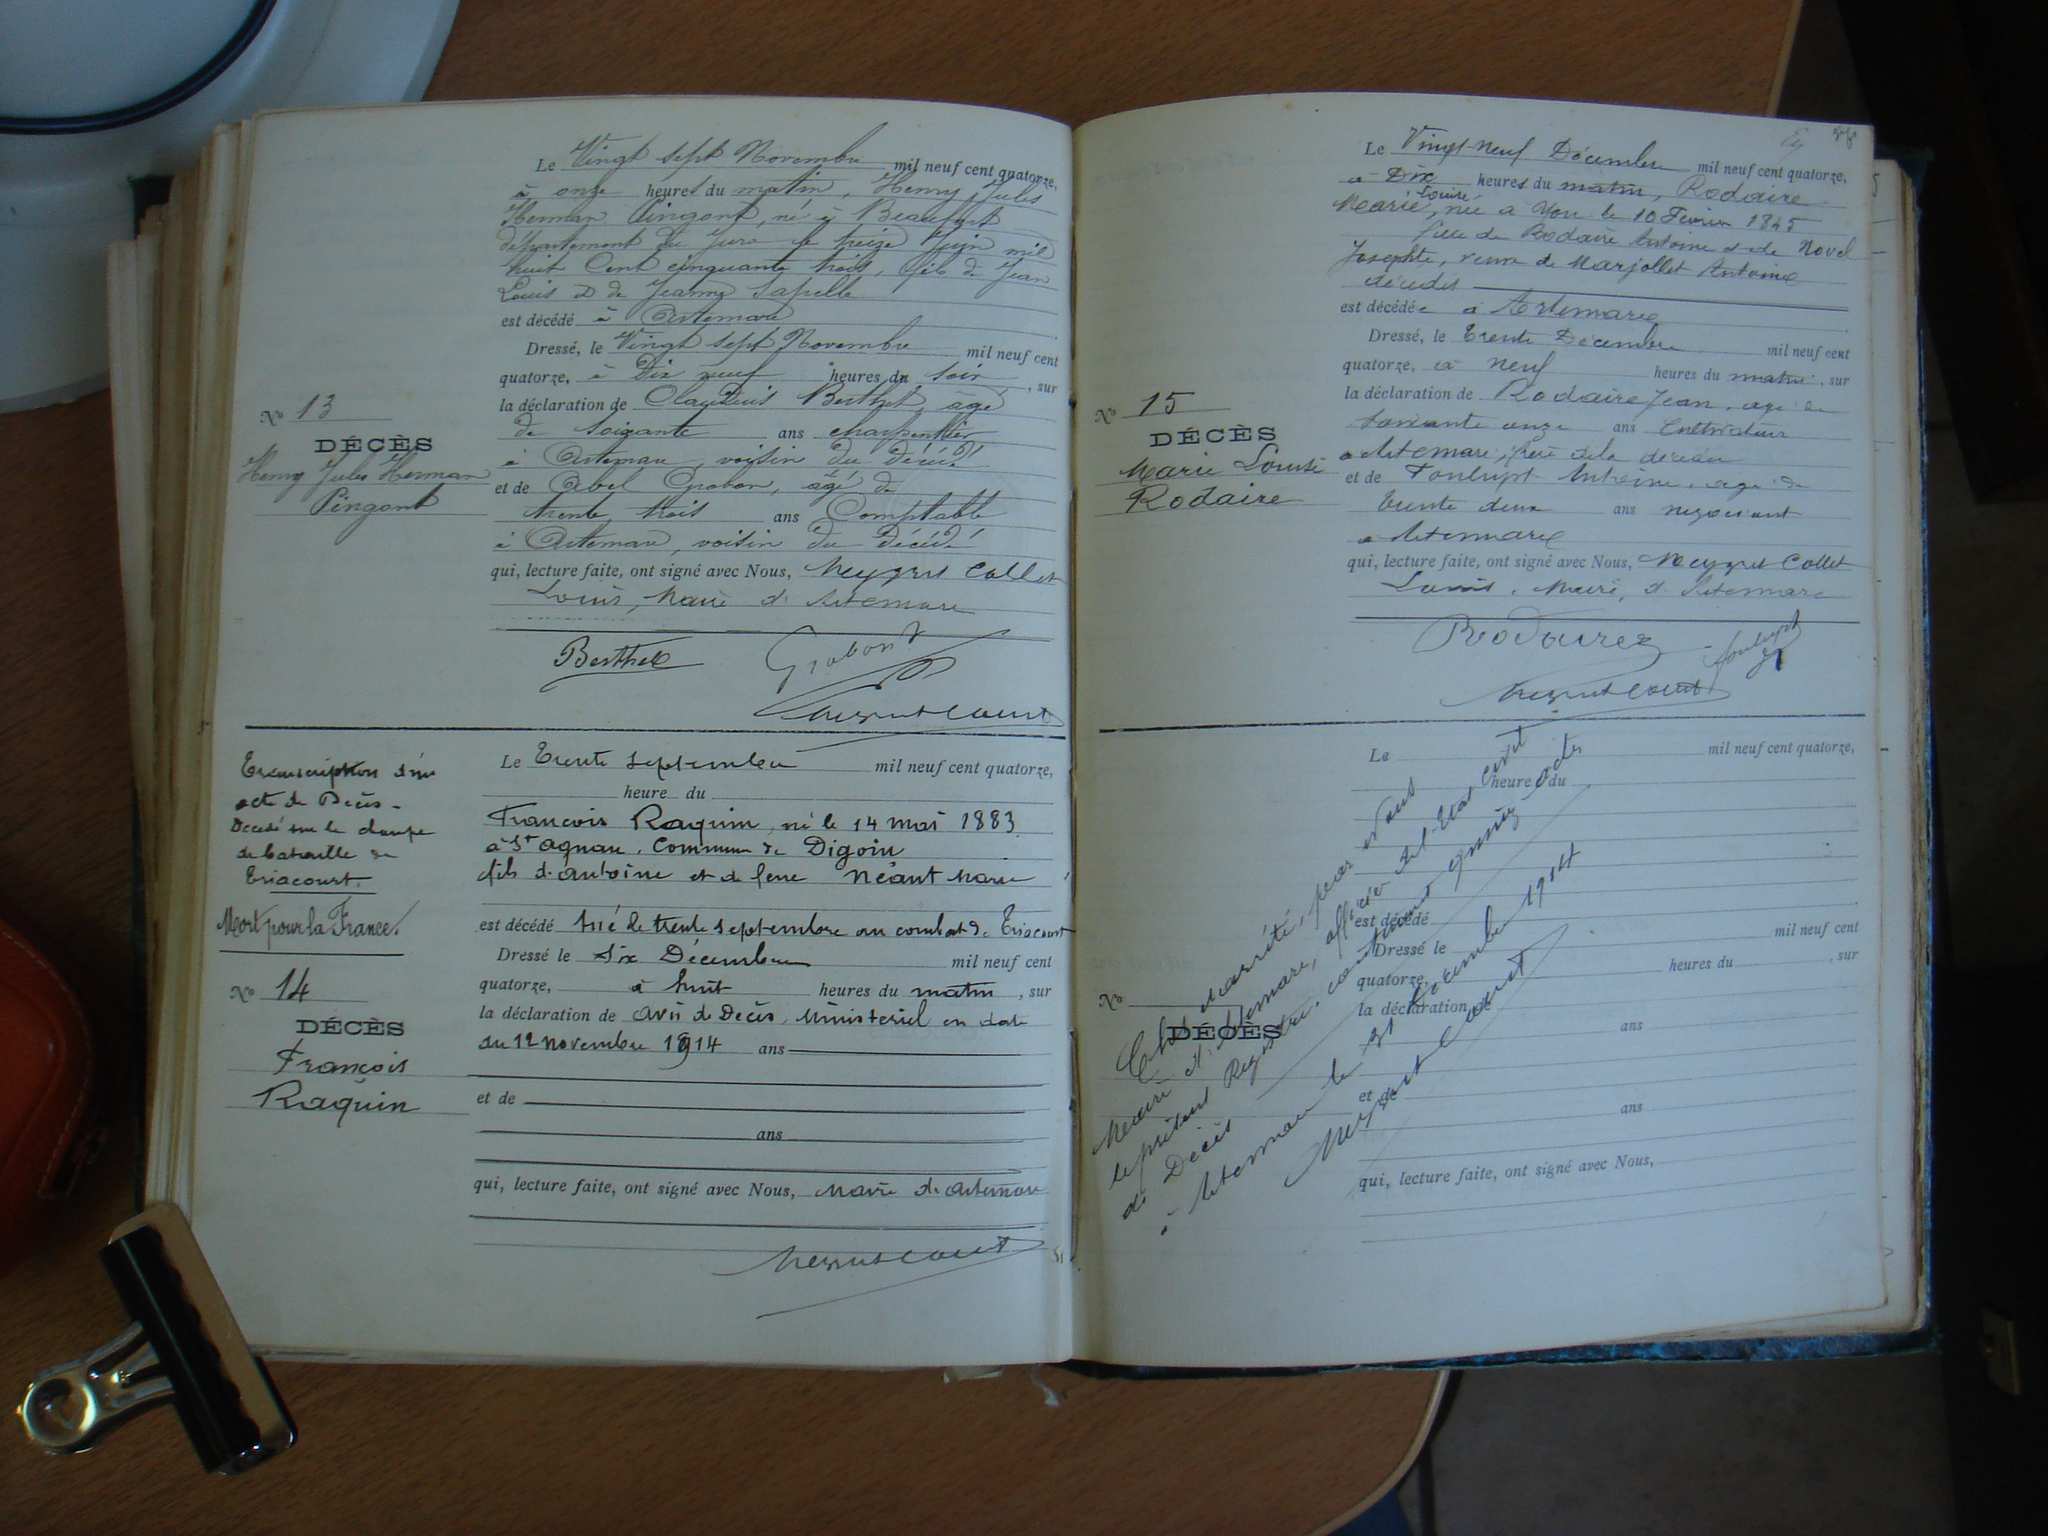 Le Vingt sept Novembre mil neuf cent quatorze,
à onze heures du matin, Henry Jules
Herman Pingont, né à Beaufort
département du Jura le treize Juin mil
huit Cent cinquante trois, fils de Jean
Louis et de Jeanne Sapelle
est décédé à Artemare
Dressé, le Vingt sept Novembre mil neuf cent
quatorze, à Dix neuf heures du soir, sur
la déclaration de Claudius Berthet, agé
de soixante ans charpentier
à Artemare, voisin du Décédé
et de Abel, agé de
trente trois ans Comptable
à Artemare, voisin du Décédé
qui, lecture faite, ont signé avec Nous, Meygret Collet
Louis, Maire d'Artemare
Berthet
No 13
DÉCÈS
Henry Jules Herman
Pingont
Transcription d'un
acte de Décès -
Décédé sur le champ
de bataille de
Triacourt.
Mort pour la France.
No 14
DÉCÈS
François
Raquin
Le Trente septembre mil neuf cent quatorze,
heure du
François Raquin, né le 14 mai 1883
à St Agnan, Commune de Digoin
fils d'antoine et de feue Néant Marie
est décédé tué le trente septembre au combat de Triacourt
Dressé le six Décembre mil neuf cent
quatorze, à huit heures du matin, sur
la déclaration de avis de Décès, Ministériel en date
du 12 novembre 1914 ans
et de
ans
qui, lecture faite, ont signé avec Nous, Maire de Artemare
Le Vingt-neuf Décembre mil neuf cent quatorze,
à Dix heures du matin, Rodaire
Marie Louise, née à Yon le 10 Février 1845
fille de Rodaire Antoine et de Novel
Josephte, veuve de Marjollet Antoine
décédés
est décédée à Artemare
Dressé, le Trente Décembre mil neuf cent
quatorze, à neuf heures du matin, sur
la déclaration de Rodaire Jean, agé de
soixante onze ans Cultivateur
à Artemare, frère de la décédée
et de Antoine, agé de
trente deux ans négociant
à Artemare
qui, lecture faite, ont signé avec Nous, Meygret Collet
Louis, Maire, d'Artemare
No 15
DÉCÈS
Marie Louise
Rodaire
Le mil neuf cent quatorze,
heure du
est décédé
Dressé le mil neuf cent
quatorze, heures du, sur
la déclaration de
ans
et de
ans
qui, lecture faite, ont signé avec Nous,
No
DÉCÈS
Clos et arrêté, par Nous
Maire d'Artemare, officier de l'Etat civil
le présent Registre, contenant quinze actes
de Décès
à Artemare le 31 Décembre 1914